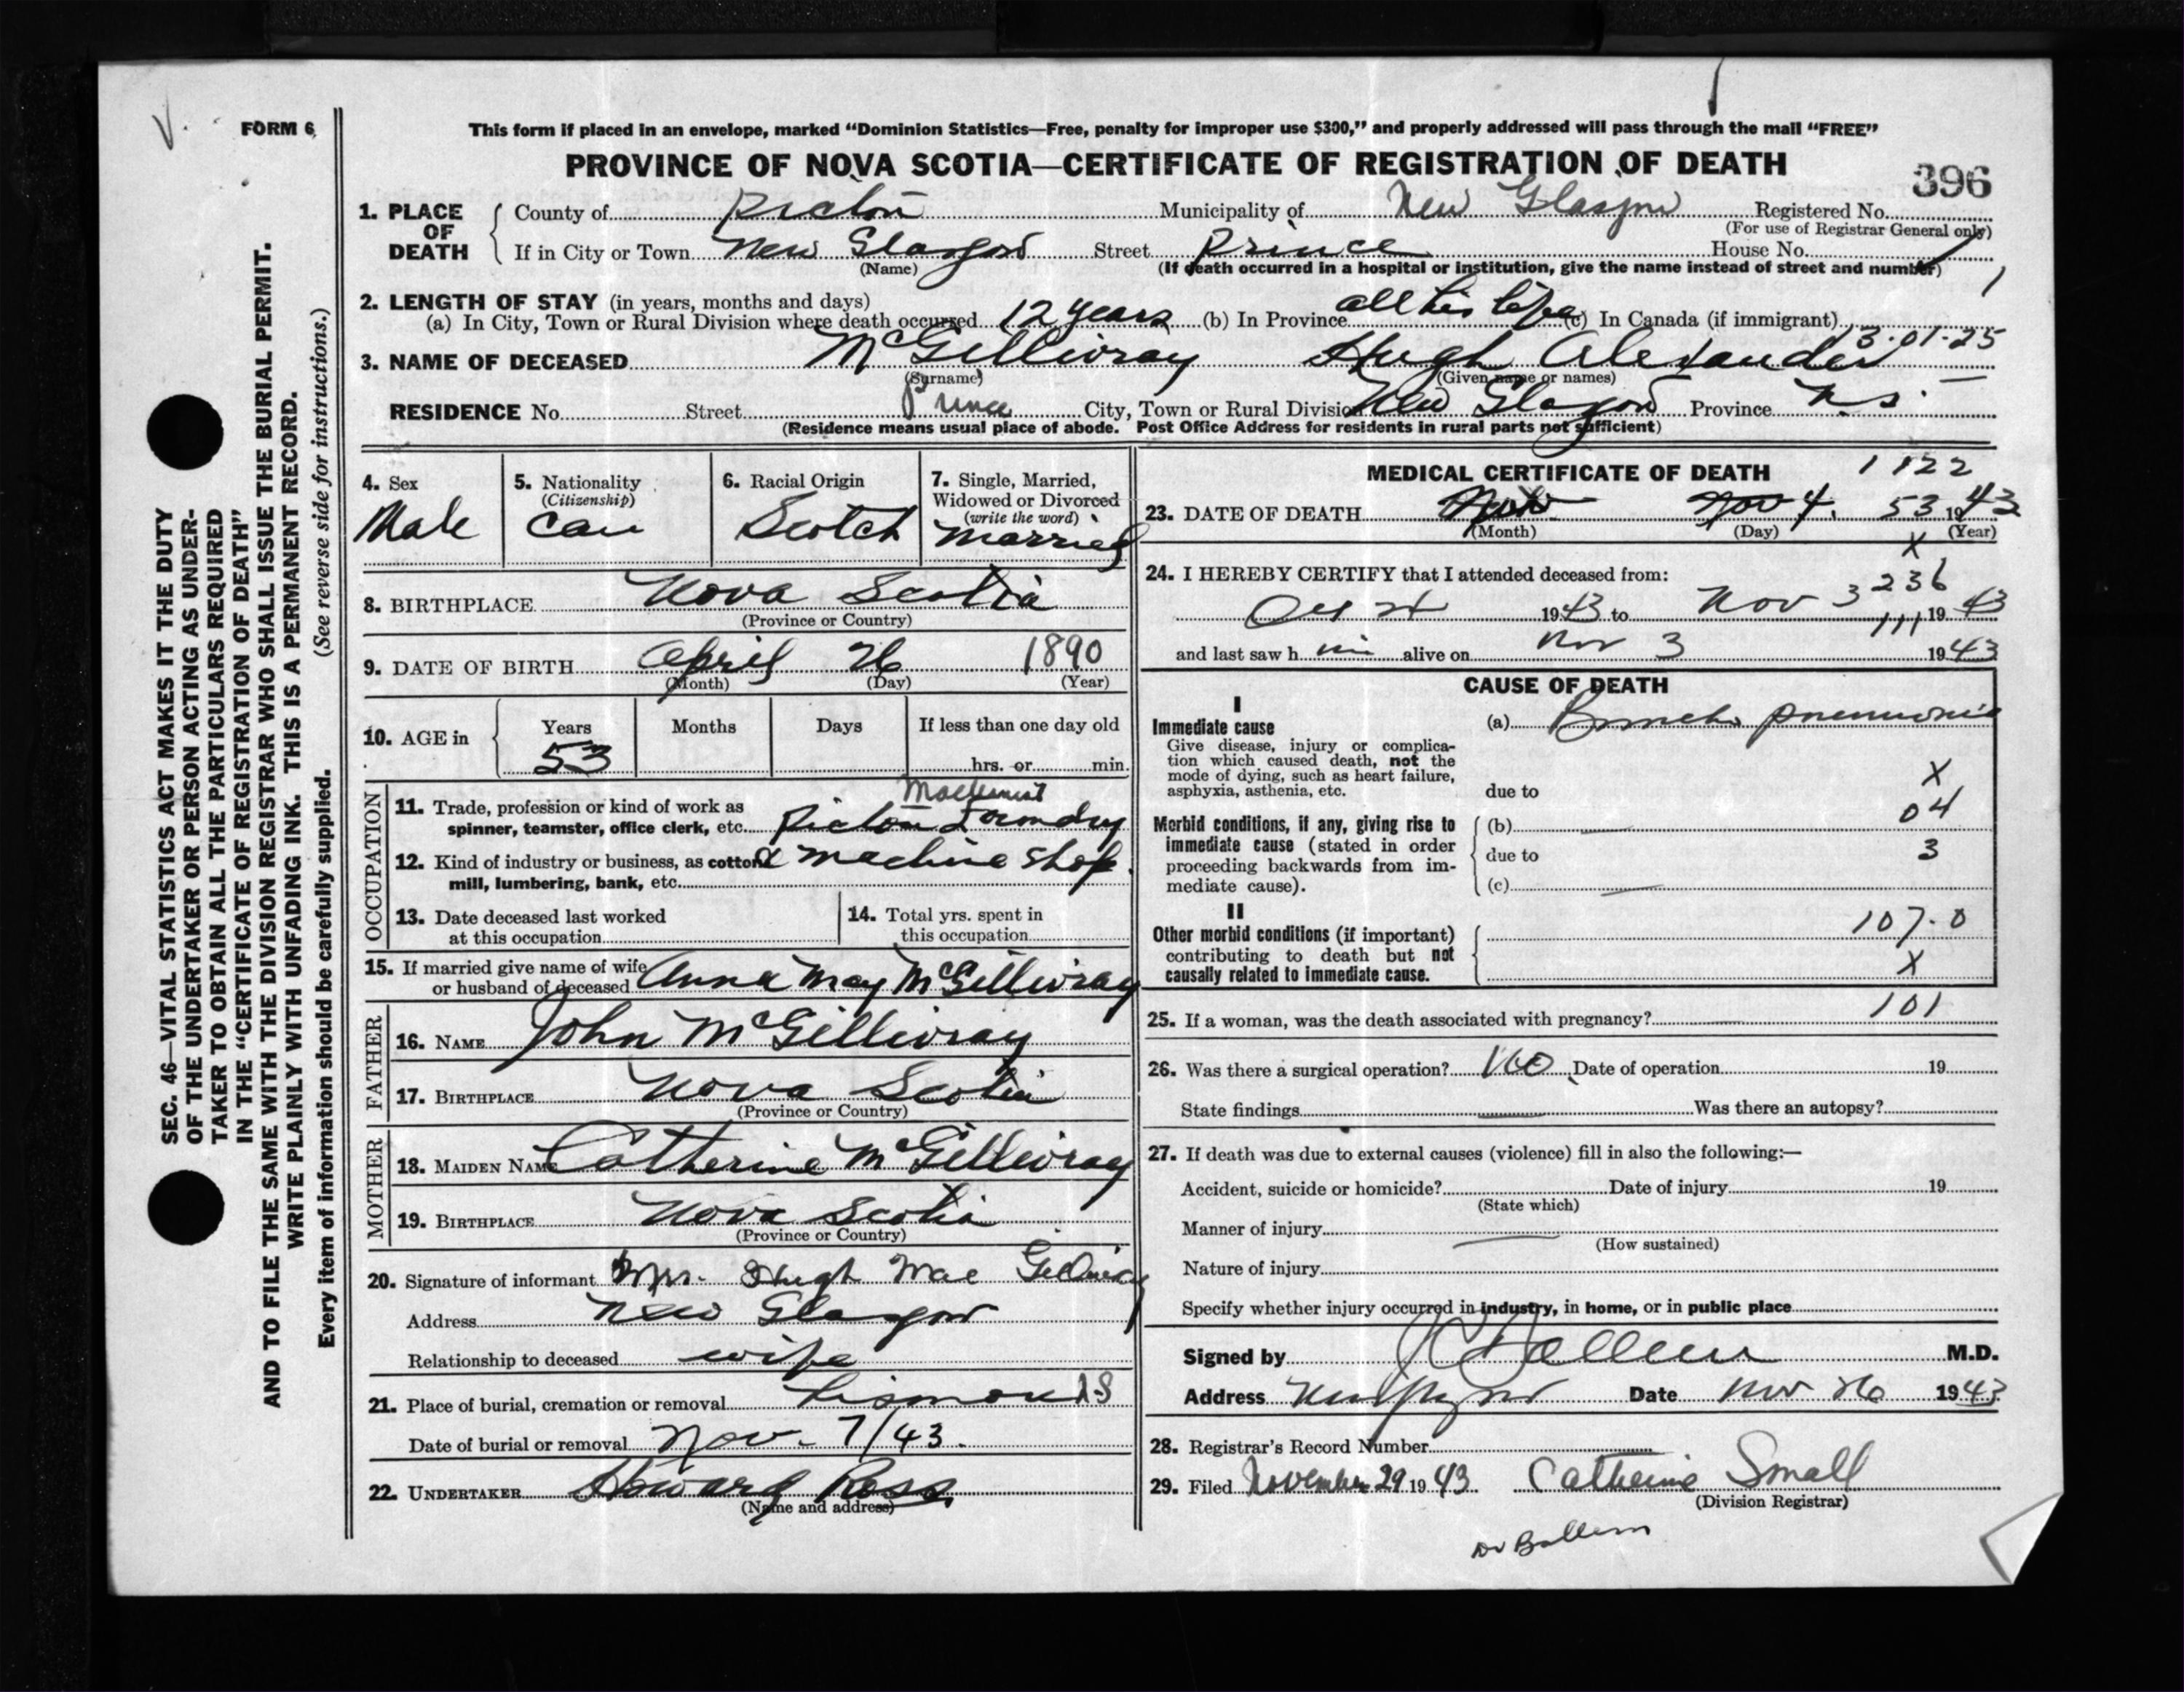 FORM 6
This form if placed in an envelope, marked “Dominion Statistics—Free, penalty for improper use $300,” and properly addressed will pass through the mail “FREE”
PROVINCE OF NOVA SCOTIA—CERTIFICATE OF REGISTRATION OF DEATH
396
1. PLACE OF DEATH County of Pictou Municipality of New Glasgow Registered No.
(For use of Registrar General only)
If in City or Town New Glasgow Street Prince House No.
(Name) (If death occurred in a hospital or institution, give the name instead of street and number)
2. LENGTH OF STAY (in years, months and days)
(a) In City, Town or Rural Division where death occurred 12 years (b) In Province all his life (c) In Canada (if immigrant)
13·01·25
3. NAME OF DECEASED McGillivray Hugh Alexander
(Surname) (Given name or names)
RESIDENCE No. Street Prince City, Town or Rural Division New Glasgow Province N.S.
(Residence means usual place of abode. Post Office Address for residents in rural parts not sufficient)
SEC. 46—VITAL STATISTICS ACT MAKES IT THE DUTY
OF THE UNDERTAKER OR PERSON ACTING AS UNDER-
TAKER TO OBTAIN ALL THE PARTICULARS REQUIRED
IN THE “CERTIFICATE OF REGISTRATION OF DEATH”
AND TO FILE THE SAME WITH THE DIVISION REGISTRAR WHO SHALL ISSUE THE BURIAL PERMIT.
WRITE PLAINLY WITH UNFADING INK. THIS IS A PERMANENT RECORD.
Every item of information should be carefully supplied. (See reverse side for instructions.)
4. Sex
Male
5. Nationality
(Citizenship)
Can
6. Racial Origin
Scotch
7. Single, Married,
Widowed or Divorced
(write the word)
Married
8. BIRTHPLACE Nova Scotia
(Province or Country)
9. DATE OF BIRTH April 26 1890
(Month) (Day) (Year)
10. AGE in Years Months Days If less than one day old
53 hrs. or min.
OCCUPATION
Machinist
11. Trade, profession or kind of work as
spinner, teamster, office clerk, etc. Pictou Foundry
12. Kind of industry or business, as cotton & machine shop.
mill, lumbering, bank, etc.
13. Date deceased last worked
at this occupation
14. Total yrs. spent in
this occupation
15. If married give name of wife
or husband of deceased Anna May McGillivray
FATHER
16. NAME John McGillivray
17. BIRTHPLACE Nova Scotia
(Province or Country)
MOTHER
18. MAIDEN NAME Catherine McGillivray
19. BIRTHPLACE Nova Scotia
(Province or Country)
20. Signature of informant Mrs. Hugh Mac Gillivray
Address New Glasgow
Relationship to deceased wife
21. Place of burial, cremation or removal Lismore NS
Date of burial or removal Nov. 7/43.
22. UNDERTAKER Howard Ross.
(Name and address)
MEDICAL CERTIFICATE OF DEATH
1122
23. DATE OF DEATH Nov 4. 53 1943
(Month) (Day) (Year)
X
24. I HEREBY CERTIFY that I attended deceased from:
236
1943 to Nov 3 1943
111
and last saw h im alive on Nov 3 1943
CAUSE OF DEATH
I
Immediate cause
Give disease, injury or complica-
tion which caused death, not the
mode of dying, such as heart failure,
asphyxia, asthenia, etc.
(a) Broncho pneumonia
X
due to
04
Morbid conditions, if any, giving rise to
immediate cause (stated in order
proceeding backwards from im-
mediate cause).
(b)
due to
3
(c)
II
Other morbid conditions (if important)
contributing to death but not
causally related to immediate cause.
107·0
X
101
25. If a woman, was the death associated with pregnancy?
26. Was there a surgical operation? No Date of operation 19
State findings Was there an autopsy?
27. If death was due to external causes (violence) fill in also the following:—
Accident, suicide or homicide? Date of injury 19
(State which)
Manner of injury
(How sustained)
Nature of injury
Specify whether injury occurred in industry, in home, or in public place
Signed by Ballem M.D.
Address New Glasgow Date Nov 26 1943
28. Registrar's Record Number
29. Filed November 29 1943 Catherine Small
(Division Registrar)
Dr Ballem